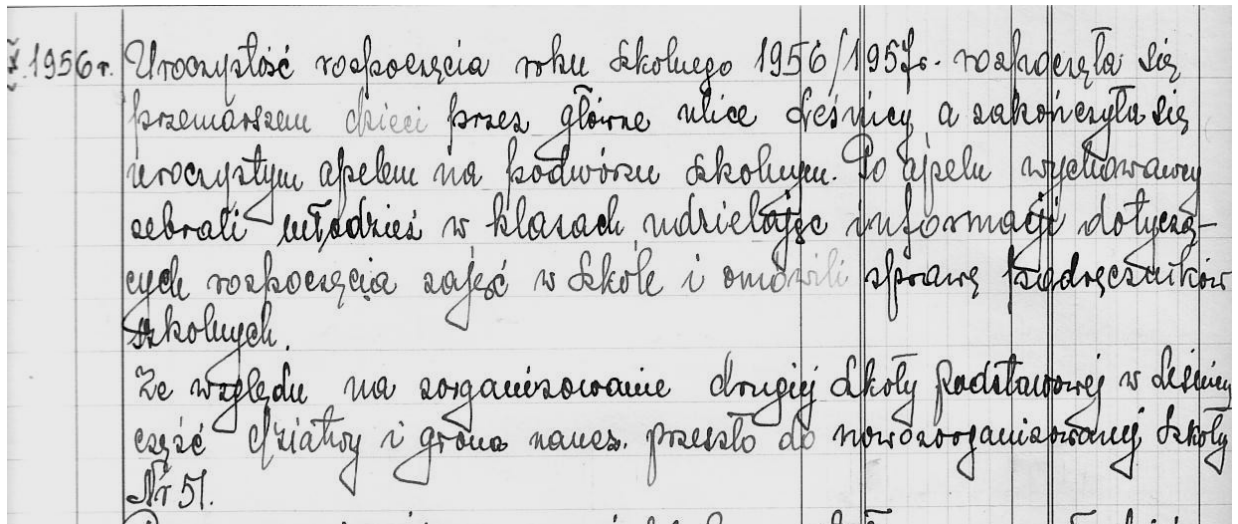 1956r. Uroczystość rozpoczęcia roku szkolnego 1956/1957r. rozpoczęła się
przemarszem dzieci przez główne ulice Leśnicy a zakończyła się
uroczystym apelem na podwórzu szkolnym. Po apelu wychowawcy
zebrali młodzież w klasach udzielając informacji dotyczą-
cych rozpoczęcia zajęć w szkole i omówili sprawę podręczników
szkolnych.
Ze względu na zorganizowanie drugiej szkoły podstawowej w Leśnicy
część dziatwy i grona naucz. przeszło do nowozorganizowanej szkoły
Nr 51.